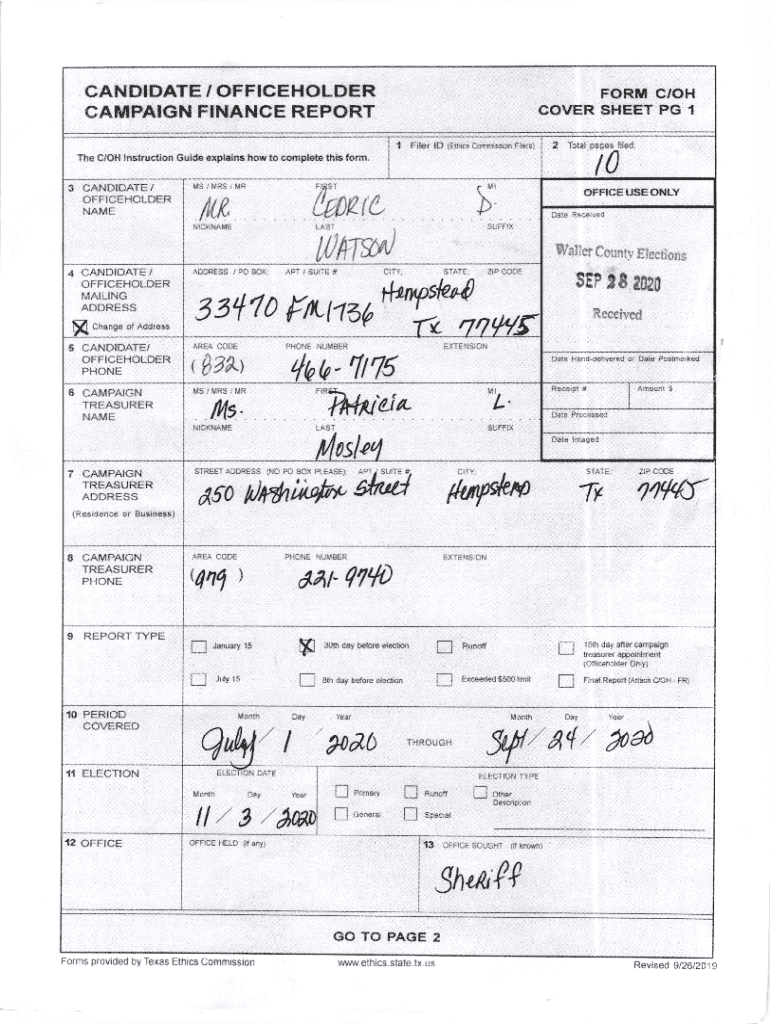 CANDIDATE / OFFICEHOLDER
CAMPAIGN FINANCE REPORT
FORM C/OH
COVER SHEET PG 1
The C/OH Instruction Guide explains how to complete this form.
1 Filer ID (Ethics Commission Filers)
2 Total pages filed:
10
3 CANDIDATE /
OFFICEHOLDER
NAME
MS / MRS / MR FIRST MI
MR. CEDRIC D.
NICKNAME LAST SUFFIX
WATSON
OFFICE USE ONLY
Date Received
Waller County Elections
SEP 28 2020
Received
4 CANDIDATE /
OFFICEHOLDER
MAILING
ADDRESS
Change of Address
ADDRESS / PO BOX; APT / SUITE #; CITY; STATE; ZIP CODE
33470 FM 1736 Hempstead
Tx 77445
5 CANDIDATE/
OFFICEHOLDER
PHONE
AREA CODE PHONE NUMBER EXTENSION
(832) 466-7175
Date Hand-delivered or Date Postmarked
6 CAMPAIGN
TREASURER
NAME
MS / MRS / MR FIRST MI
Ms. PAtRicia L.
NICKNAME LAST SUFFIX
Mosley
Receipt # Amount $
Date Processed
Date Imaged
7 CAMPAIGN
TREASURER
ADDRESS
(Residence or Business)
STREET ADDRESS (NO PO BOX PLEASE); APT / SUITE #; CITY; STATE; ZIP CODE
250 WAshington Street Hempstead Tx 77445
8 CAMPAIGN
TREASURER
PHONE
AREA CODE PHONE NUMBER EXTENSION
(979) 221-9740
9 REPORT TYPE
January 15
30th day before election
Runoff
15th day after campaign
treasurer appointment
(Officeholder Only)
July 15
8th day before election
Exceeded $500 limit
Final Report (Attach C/OH - FR)
10 PERIOD
COVERED
Month Day Year
July / 1 / 2020
THROUGH
Month Day Year
Sept / 24 / 2020
11 ELECTION
ELECTION DATE
Month Day Year
11 / 3 / 2020
ELECTION TYPE
Primary
Runoff
Other
Description
General
Special
12 OFFICE
OFFICE HELD (if any)
13 OFFICE SOUGHT (if known)
SheRiff
GO TO PAGE 2
Forms provided by Texas Ethics Commission
www.ethics.state.tx.us
Revised 9/26/2019